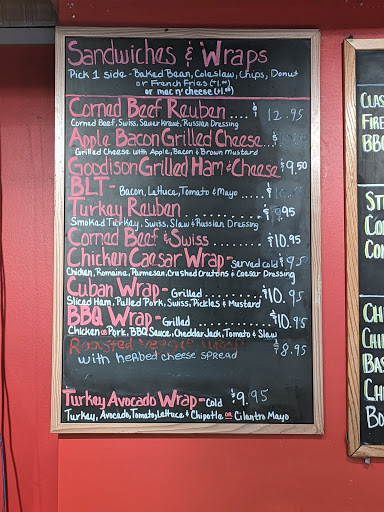 Sandwiches & Wraps
Pick 1 side - Baked Bean, Coleslaw, Chips, Donut
or French Fries
or mac n' cheese
Corned Beef Reuben.... $ 12.95
Corned Beef, Swiss, Sauer Kraut, Russian Dressing
Apple Bacon Grilled Cheese... $
Grilled Cheese with Apple, Bacon & Brown Mustard
Goodison Grilled Ham & Cheese $9.50
BLT - Bacon, Lettuce, Tomato & Mayo ..... $
Turkey Reuben .......... $ 9.95
Smoked Turkey, Swiss, Slaw & Russian Dressing
Corned Beef & Swiss ........ $10.95
Chicken Caesar Wrap - served cold $9.95
Chicken, Romaine, Parmesan, Crushed Croutons & Caesar Dressing
Cuban Wrap - Grilled ......... $10.95
Sliced Ham, Pulled Pork, Swiss, Pickles & Mustard
BBQ Wrap - Grilled .......... $10.95
Chicken or Pork, BBQ Sauce, Cheddar Jack, Tomato & Slaw
Roasted Veggie Wrap $8.95
with herbed cheese spread
Turkey Avocado Wrap - cold $9.95
Turkey, Avocado, Tomato, Lettuce & Chipotle or Cilantro Mayo
BBQ